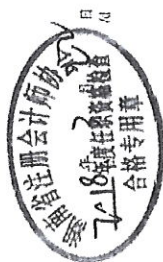 湖南省注册会计师协会
2018年度任职资格检查
合格专用章
月
日